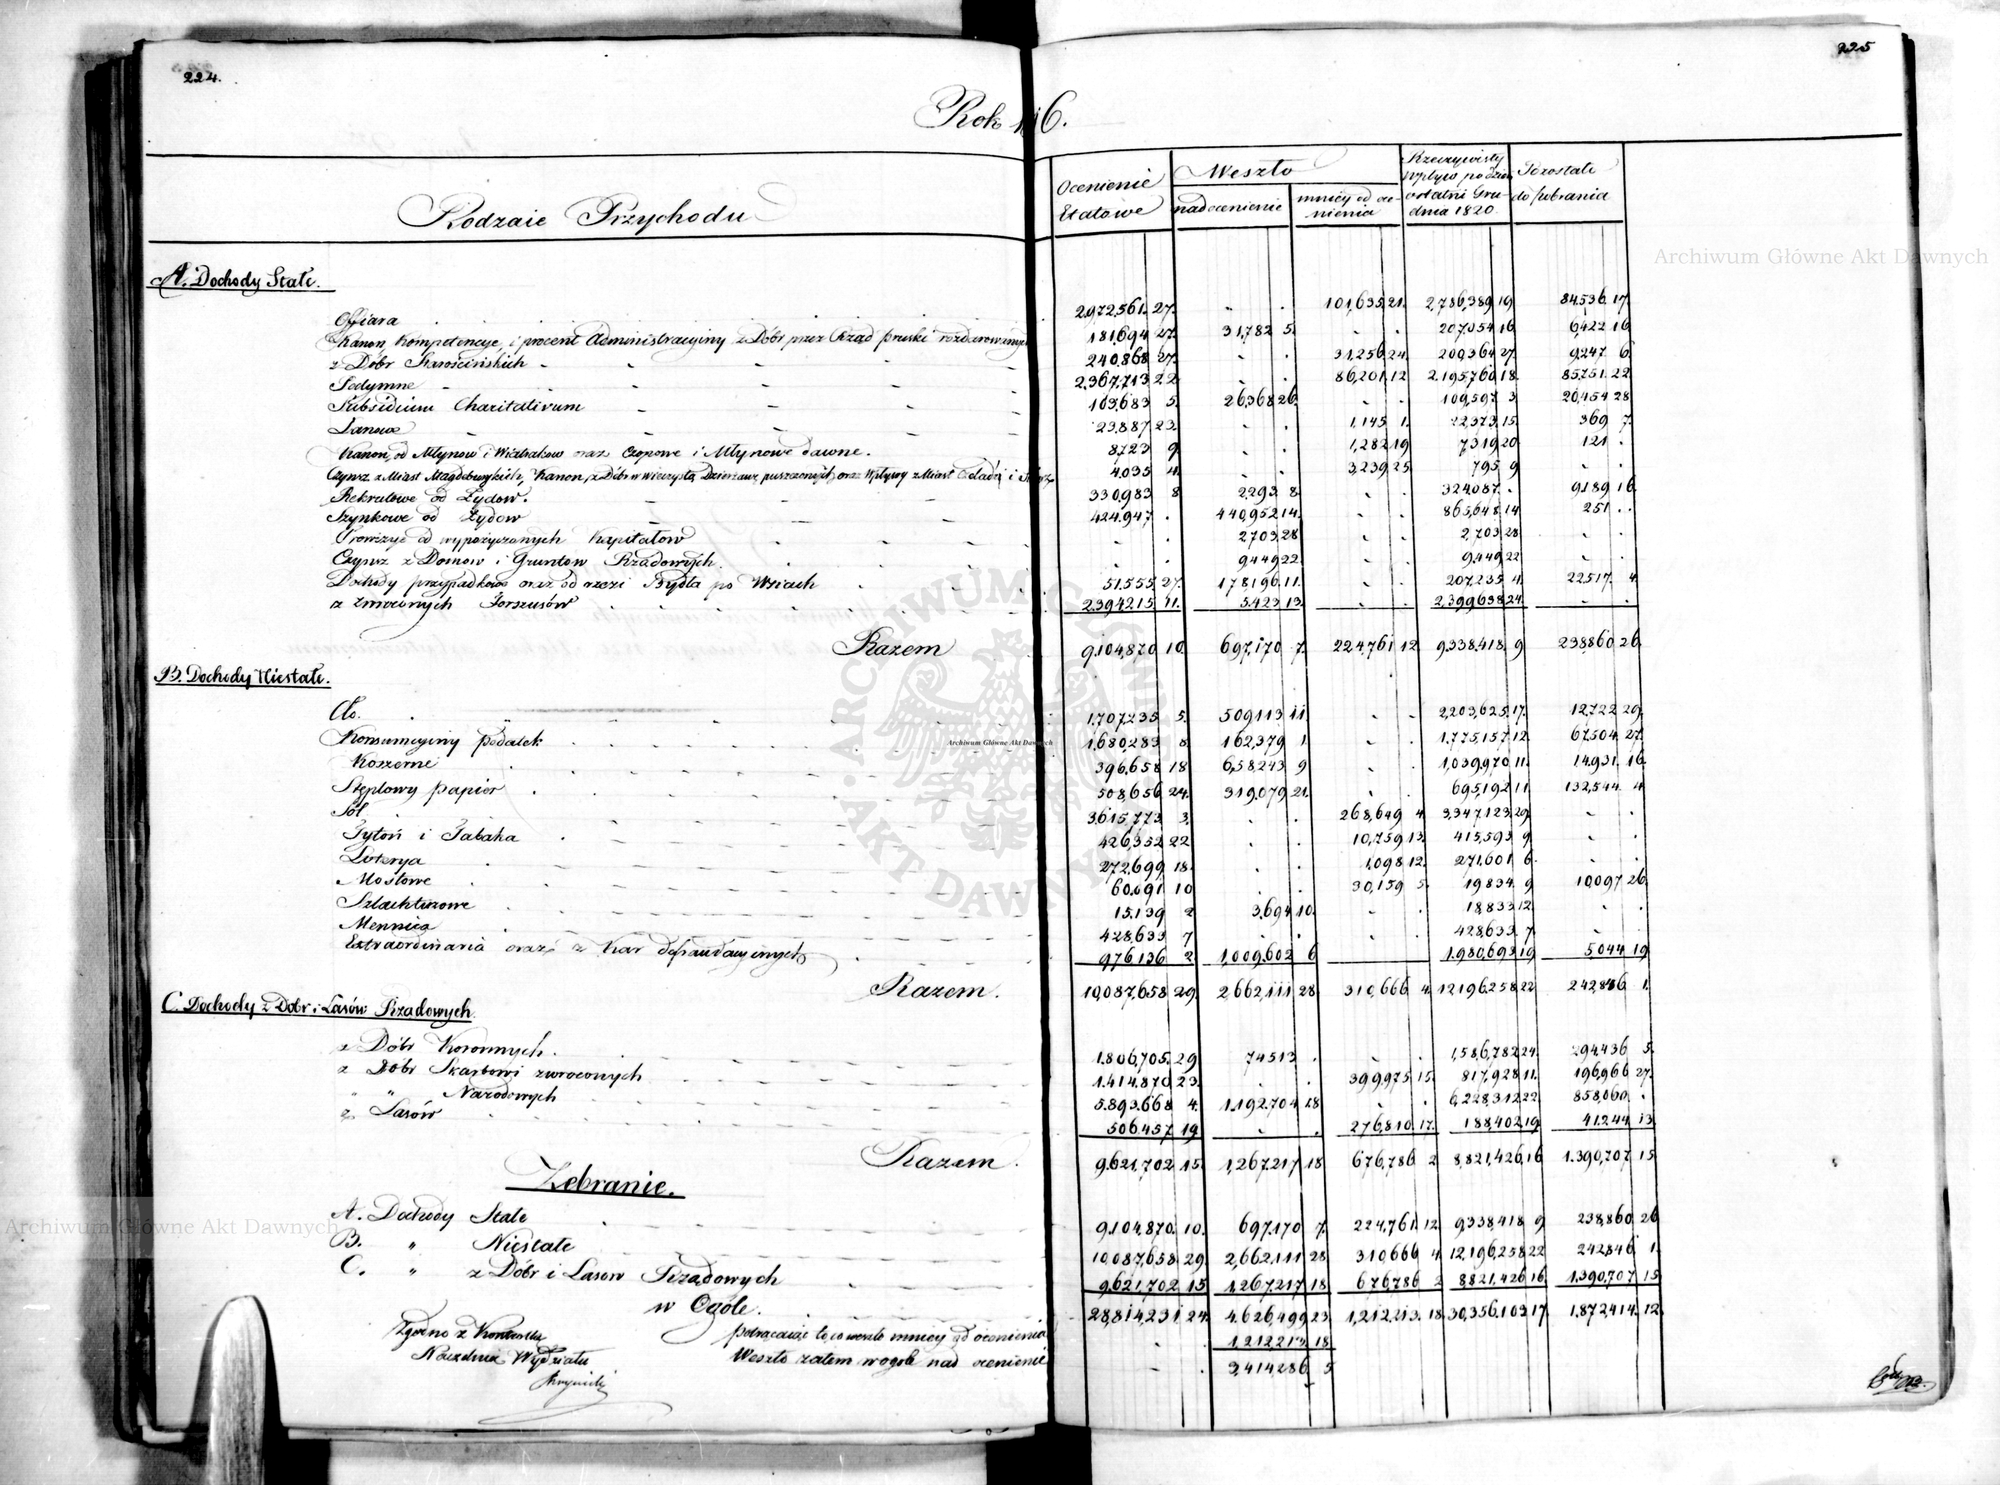 224.
225
Rok 1816.
Rodzaie Przychodu
Ocenienie Etatowe
Weszło
nad ocenienie
mnićy od ocenienia
Rzeczywisty wpływ po dzień ostatni Grudnia 1820.
Pozostaie do pobrania
A. Dochody Stałe.
Ofiara 2,972,561. 27. - . 101,635 21. 2,786,389 19 84,536. 17.
Kanon, Kompetencye, i procent Administracyiny z Dóbr przez Rząd pruski rozdarowanych 181,694 27. 31,782 5. - . 207,054 16. 6,422 16
z Dóbr Starościńskich 240,868 27. - . 31,256 24. 200,364 27. 9,247. 6.
Podymne 2,367,713 22 - . 86,201. 12 2,195,760 18. 85,751. 22
Subsidium Charitativum 103,683 5. 26,368 26. - . 109,597 3 20,454 28
Łanowe 23,887 23. - . 1,145 1. 22,373. 15. 369 7.
Kanon, od Młynów i Wiatraków oraz Czopowe i Młynowe dawne. 8,723 9. - . 1,282 19 7,319 20 121 .
Czynsz z Miast Magdeburgskich, Kanon, z Dóbr w wieczystą Dzierżawę puszczonych oraz Wpływy z Miast 4,035 4. - . 3,239 25. 795 9 - .
Rekrutowe od Żydów. 330,983 8 2,293 8. - . 324,087. - 9,189 16.
Szynkowe od Żydów 424,947 . 440,952 14. - . 865,648 14 251 . .
Prowizye od wypożyczonych Kapitałów - . 2,703 28 - . 2,703 28 - .
Czynsz z Domów i Gruntów Rządowych. - . 9,449 22 - . 9,449 22 - .
Dochody przypadkowe oraz od rzezi Bydła po Wsiach 51,555 27. 178,196. 11. - . 207,235 4. 22,517. 4
z zwróconych Forszusów 2,394,215 11. 5,423 13. - . 2,399,638 24. - .
Razem 9,104,870 10. 697,170 7. 224,761 12 9,338,418. 9 238,860 26.
B. Dochody Niestałe.
Cło. 1,707,235 5. 509,113 11. - - 2,203,625 17. 12,722 29.
Konsumcyiny podatek 1,680,283 8. 162,379 1. - . 1,775,157 12. 67,504. 27.
Koszerne 396,658 18 658,243 9 - . 1,039,970 11. 14,931. 16.
Stęplowy papiér 508,656 24. 319,079 21. - . 695,192 11. 132,544. 4
Sól 3,615,773 3. - . 268,649 4. 3,347,123 29. - .
Tytoń i Tabaka 426,352 22 - . 10,759 13. 415,593 9 - .
Loterya 272,699 18. - . 1,098 12. 271,601 6. - .
Mostowe 60,091 10 - . 30,159 5. 19,834 9 10,097 26.
Szlachtuzowe 15,139 2 3,694 10. - . 18,833 12. - .
Mennica 428,633 7 - . - . 428,633. 7. - .
Extraordinaria oraz z Kar defraudacyinych 976,136 2 1,009,602 6 1,980,693 19 5,044 19
Razem. 10,087,658 29. 2,662,111 28 310,666 4. 12,196,258 22 242,846 1.
C. Dochody z Dóbr i Lasów Rządowych.
z Dóbr Koronnych. 1,806,705. 29 74,513 . - . 1,586,782 24. 294,436 5.
z Dóbr Skarbowi zwróconych 1,414,870 23. . . 399,975 15. 817,928 11. 196,966 27.
" " Narodowych 5,893,668 4. 1,192,704 28 - . 6,228,312 22 858,060. .
z Lasów 506,457. 19. - . 276,810 17. 188,402 19 41,244 13
Razem. 9,621,702 15. 1,267,217 18 676,786 2 8,821,426 16 1,390,707 15
Zebranie.
A. Dochody Stałe 9,104,870. 10. 697,170 7. 224,761. 12 9,338,418 9 238,860 26
B. " Niestałe 10,087,658 29. 2,662,111 28 310,666 4. 12,196,258 22 242,846 1.
C. " z Dóbr i Lasów Rządowych 9,621,702 15 1,267,217 18 676,786 2 8,821,426 16. 1,390,707 15
w Ogóle. 28,814,231 24. 4,626,499 23 1,212,213. 18 30,356,103 17. 1,872,414. 12.
potrącaiąc to co weszło mnićy od ocenienia 1,212,213 18
Weszło zatem w ogóle nad ocenienie 3,414,286 5
Zgodno z Kontrolla
Naczelnik Wydziału
Archiwum Główne Akt Dawnych
Archiwum Główne Akt Dawnych
Archiwum Główne Akt Dawnych
ARCHIWUM GŁÓWNE AKT DAWNYCH